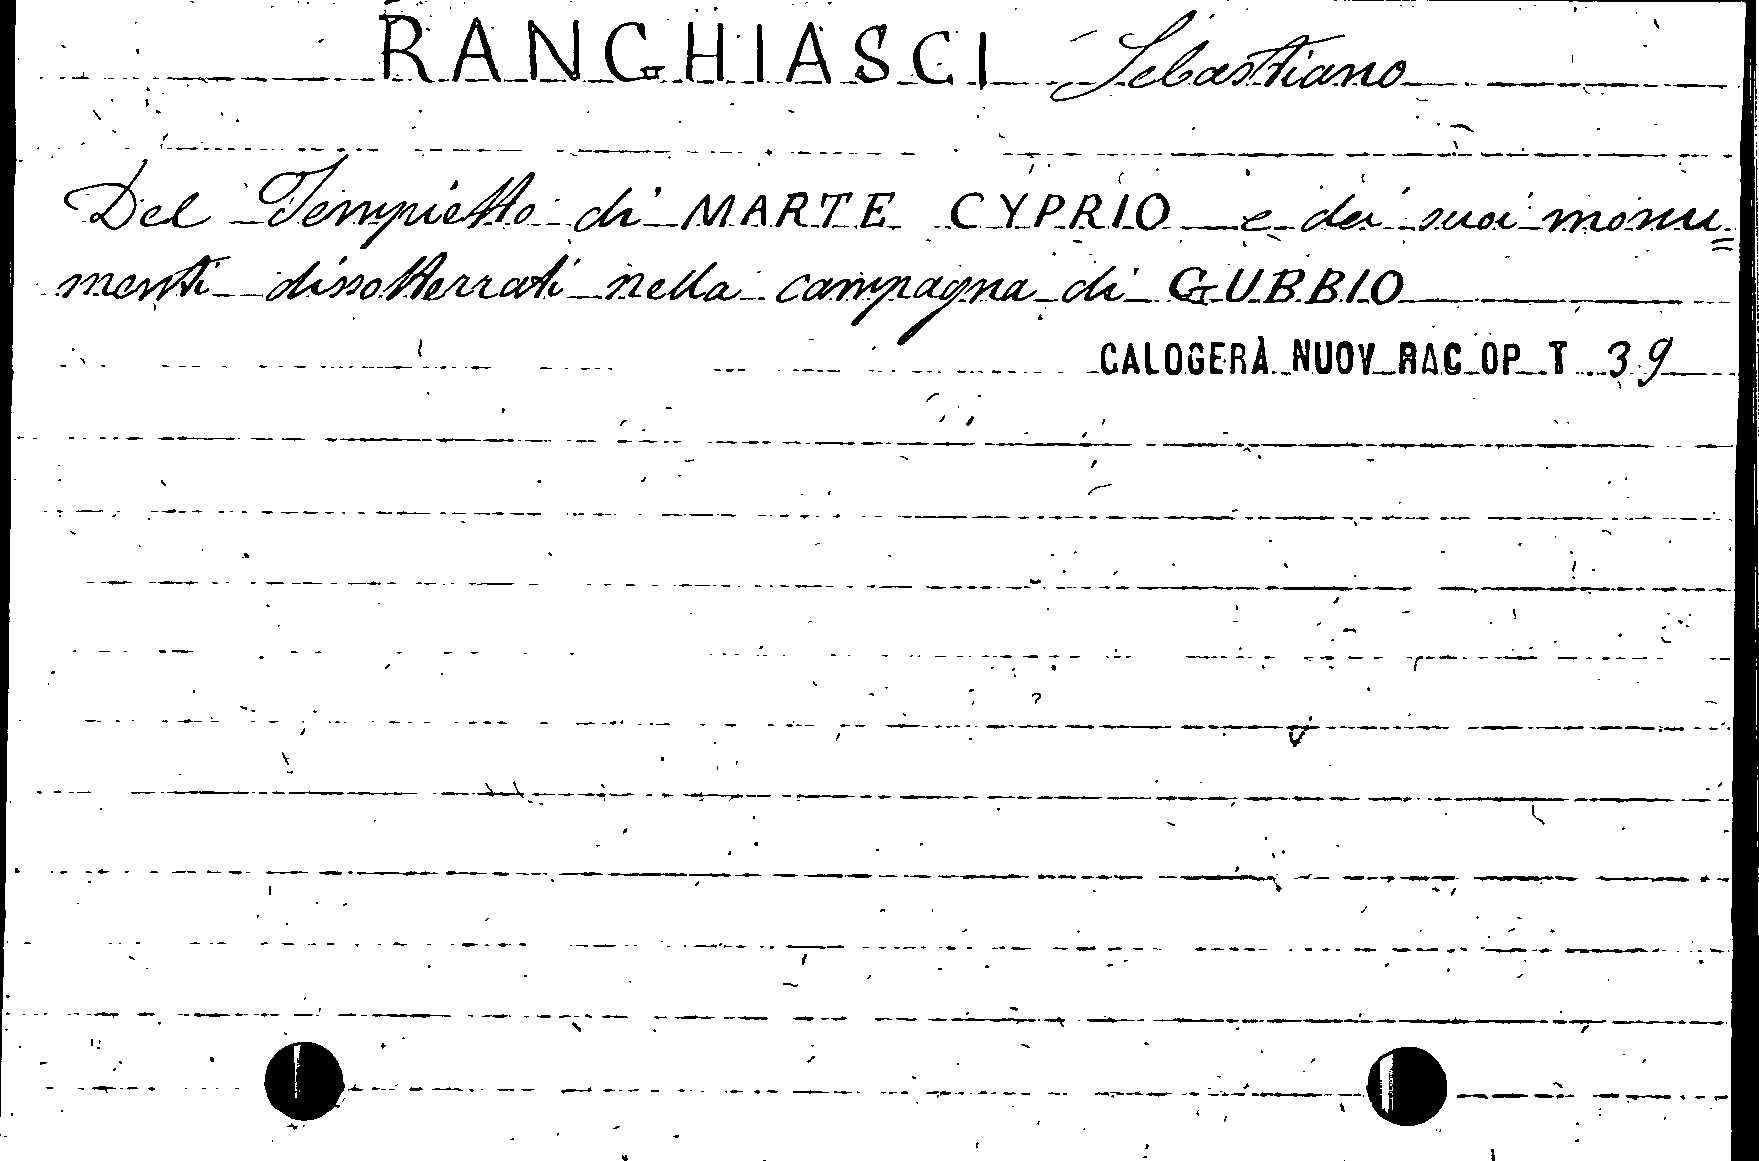 RANGHIASCI Sebastiano
Del Tempietto di MARTE CYPRIO e dei suoi monu=
menti dissotterrati nella campagna di GUBBIO
CALOGERÀ NUOV RAC OP T 39